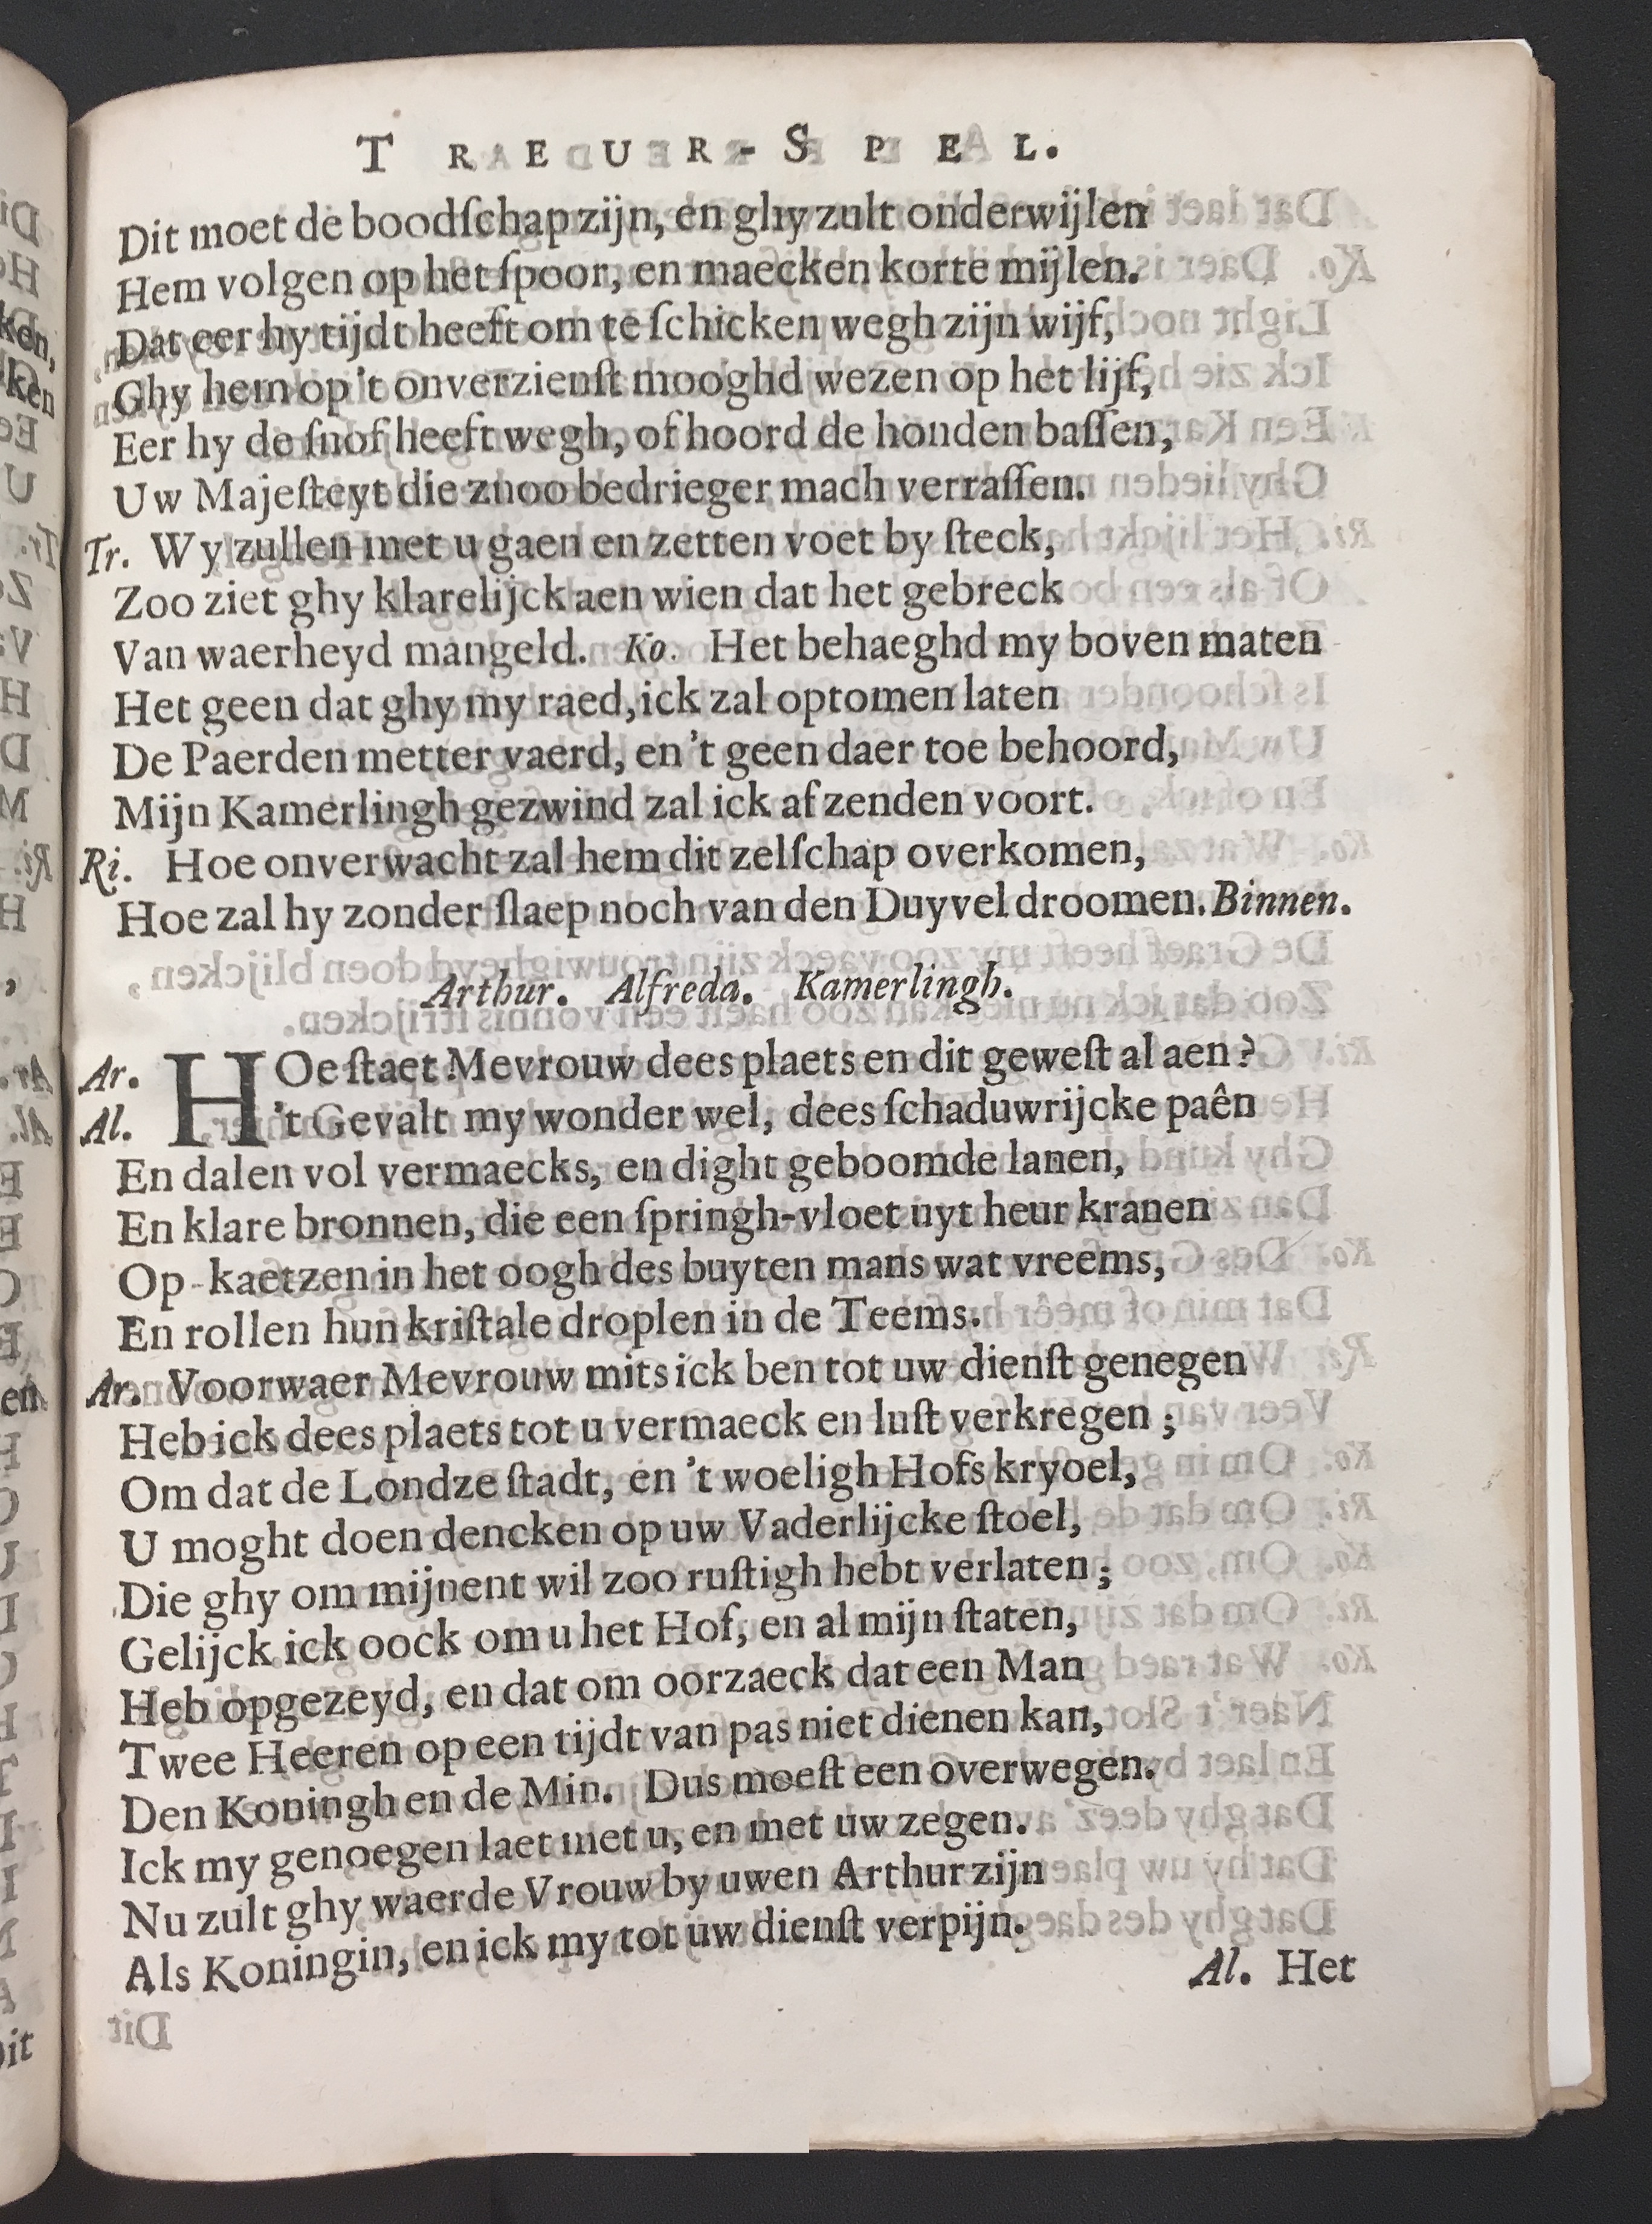 TRAEUR-SPEL.
Dit moet de boodſchap zijn, en ghy zult onderwijlen
Hem volgen op het ſpoor, en maecken korte mijlen.
Dat eer hy tijdt heeft om te ſchicken wegh zijn wijf,
Ghy hem op 't onverzienſt mooghd wezen op het lijf,
Eer hy de ſnof heeft wegh, of hoord de honden baſſen,
Uw Majeſteyt die znoo bedrieger mach verraſſen.
Tr. Wy zullen met u gaen en zetten voet by ſteck,
Zoo ziet ghy klarelijck aen wien dat het gebreck
Van waerheyd mangeld. Ko. Het behaeghd my boven maten
Het geen dat ghy my raed, ick zal optomen laten
De Paerden metter vaerd, en 't geen daer toe behoord,
Mijn Kamerlingh gezwind zal ick af zenden voort.
Ri. Hoe onverwacht zal hem dit zelſchap overkomen,
Hoe zal hy zonder ſlaep noch van den Duyvel droomen. Binnen.
Arthur. Alfreda. Kamerlingh.
Ar. HOe ſtaet Mevrouw dees plaets en dit geweſt al aen?
Al. 't Gevalt my wonder wel, dees ſchaduwrijcke paên
En dalen vol vermaecks, en dight geboomde lanen,
En klare bronnen, die een ſpringh-vloet uyt heur kranen
Op-kaetzen in het oogh des buyten mans wat vreems,
En rollen hun kriſtale droplen in de Teems.
Ar. Voorwaer Mevrouw mits ick ben tot uw dienſt genegen
Heb ick dees plaets tot u vermaeck en luſt verkregen;
Om dat de Londze ſtadt, en 't woeligh Hofs kryoel,
U moght doen dencken op uw Vaderlijcke ſtoel,
Die ghy om mijnent wil zoo ruſtigh hebt verlaten;
Gelijck ick oock om u het Hof, en al mijn ſtaten,
Heb opgezeyd, en dat om oorzaeck dat een Man
Twee Heeren op een tijdt van pas niet dienen kan,
Den Koningh en de Min. Dus moeſt een overwegen.
Ick my genoegen laet met u, en met uw zegen.
Nu zult ghy waerde Vrouw by uwen Arthur zijn
Als Koningin, en ick my tot uw dienſt verpijn.
Al. Het